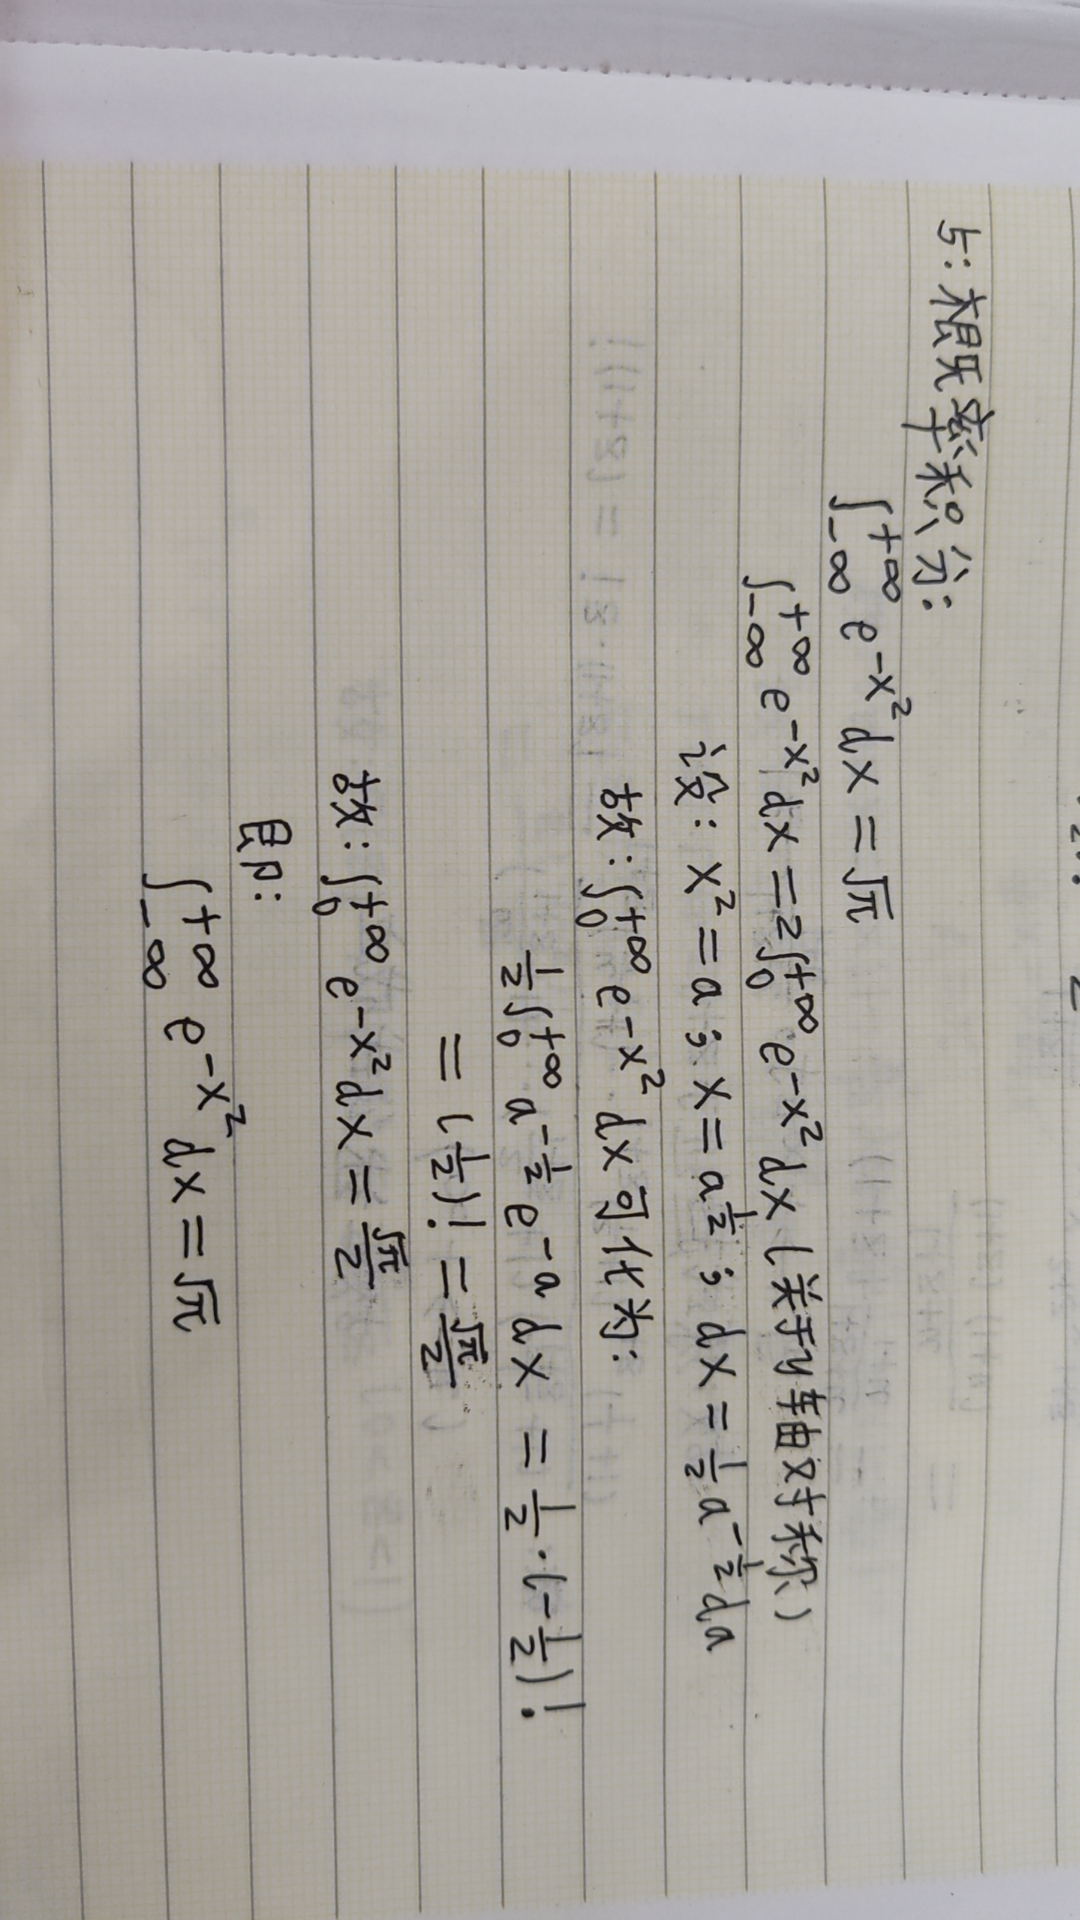 5:概率积分:
∫₋∞⁺∞ e^(-x²) dx = √π
∫₋∞⁺∞ e^(-x²) dx = 2∫₀⁺∞ e^(-x²) dx (关于y轴对称)
设: x² = a ; x = a^(1/2) ; dx = 1/2 a^(-1/2) da
故: ∫₀⁺∞ e^(-x²) dx 可化为:
1/2 ∫₀⁺∞ a^(-1/2) e^(-a) dx = 1/2 · (-1/2)!
= (1/2)! = √π/2
故: ∫₀⁺∞ e^(-x²) dx = √π/2
即:
∫₋∞⁺∞ e^(-x²) dx = √π